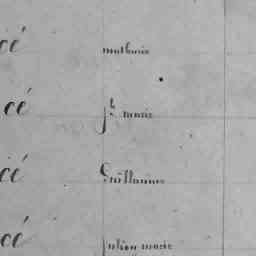 cé mathurin
cé jh marie
cé Guillaume
cé julien marie